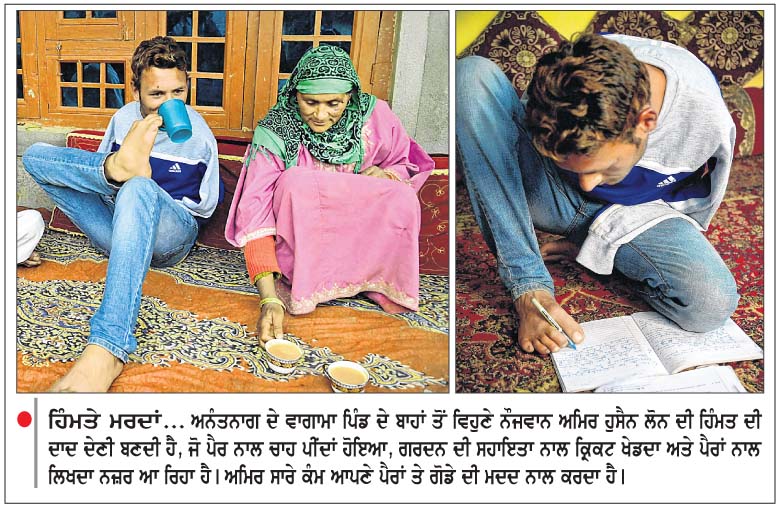 ਹਿੰਮਤੇ ਮਰਦਾਂ... ਅਨੰਤਨਾਗ ਦੇ ਵਾਗਾਮਾ ਪਿੰਡ ਦੇ ਬਾਹਾਂ ਤੋਂ ਵਿਹੂਣੇ ਨੌਜਵਾਨ ਅਮਿਰ ਹੁਸੈਨ ਲੋਨ ਦੀ ਹਿੰਮਤ ਦੀ
ਦਾਦ ਦੇਣੀ ਬਣਦੀ ਹੈ, ਜੋ ਪੈਰ ਨਾਲ ਚਾਹ ਪੀਂਦਾਂ ਹੋਇਆ, ਗਰਦਨ ਦੀ ਸਹਾਇਤਾ ਨਾਲ ਕ੍ਰਿਕਟ ਖੇਡਦਾ ਅਤੇ ਪੈਰਾਂ ਨਾਲ
ਲਿਖਦਾ ਨਜ਼ਰ ਆ ਰਿਹਾ ਹੈ। ਅਮਿਰ ਸਾਰੇ ਕੰਮ ਆਪਣੇ ਪੈਰਾਂ ਤੇ ਗੋਡੇ ਦੀ ਮਦਦ ਨਾਲ ਕਰਦਾ ਹੈ।